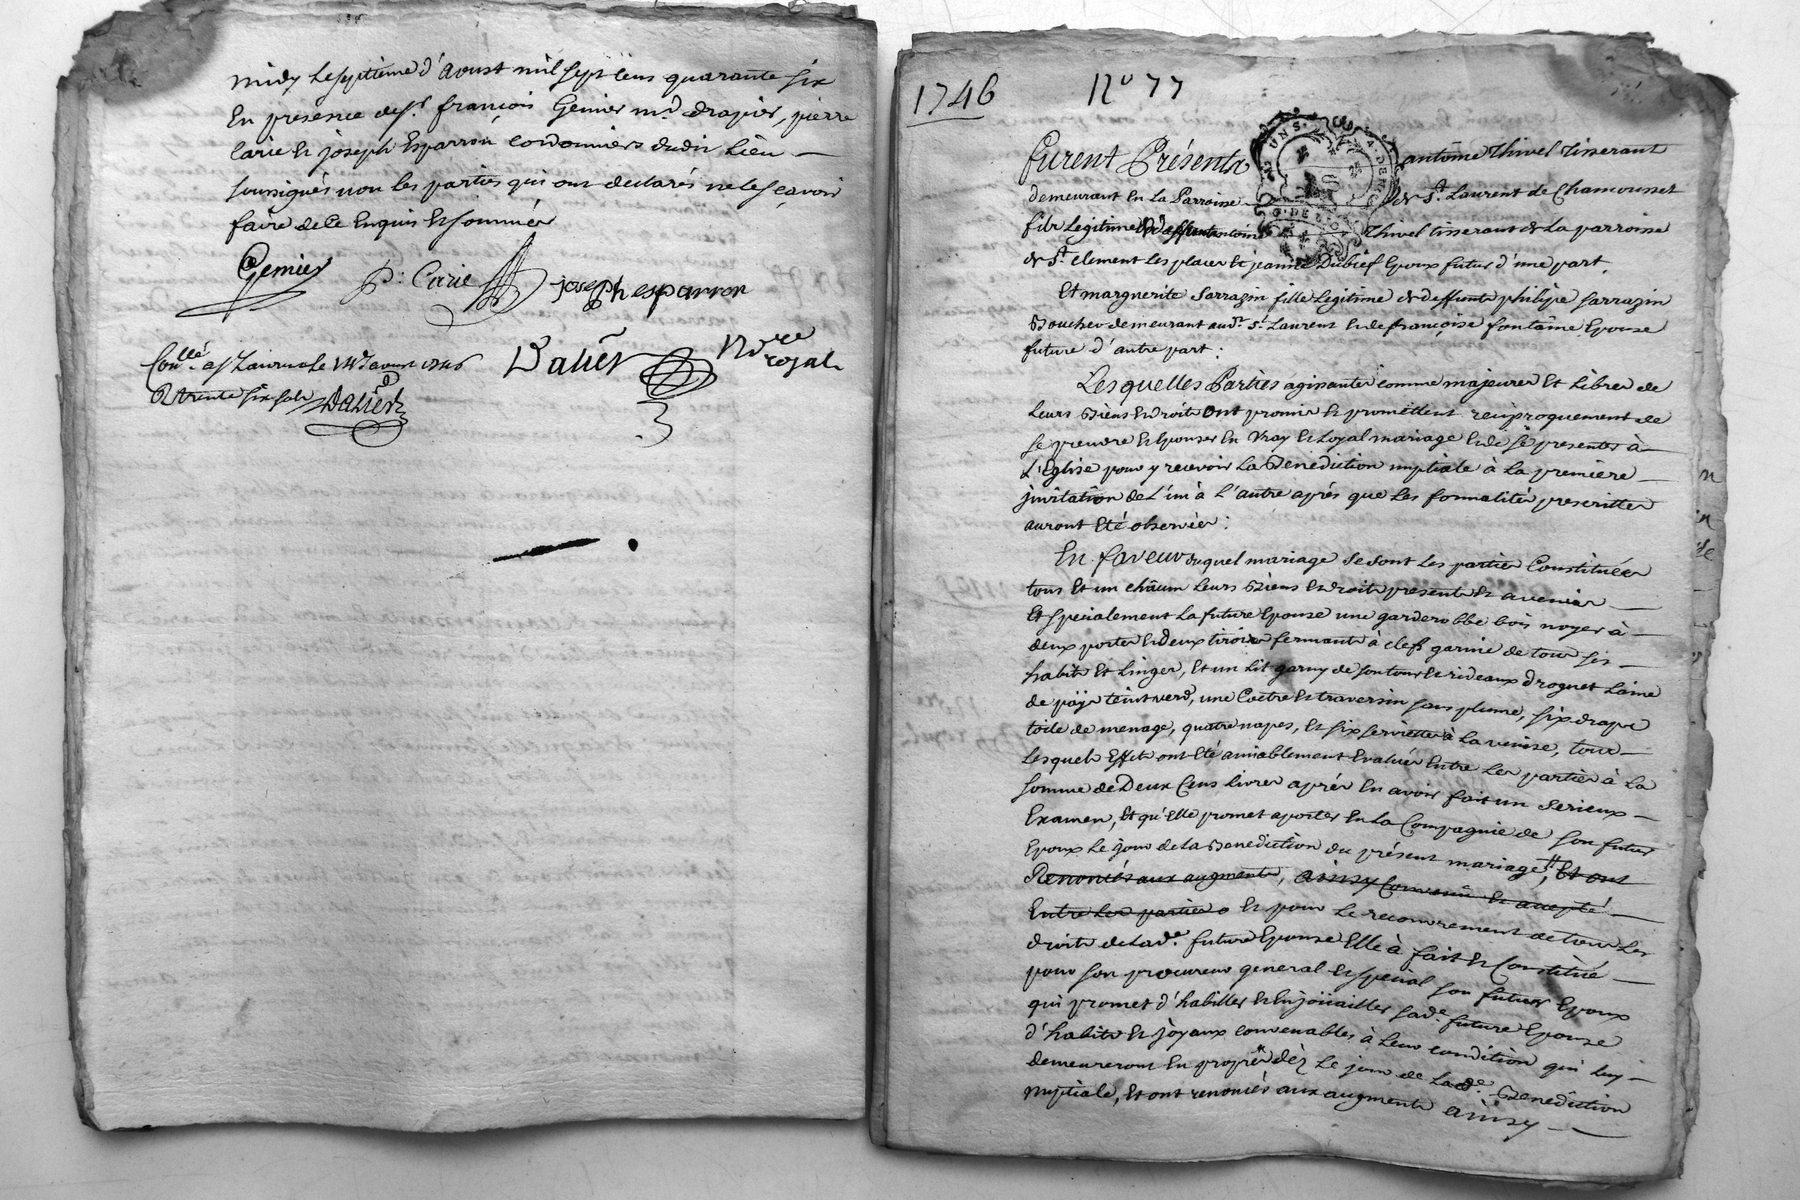 midy le septieme d'avoust mil sept cens quarante six
En presence de sr. françois Genier md. drapier, pierre
Carie et joseph Esparron cordonniers dudit Lieu
soussignés non les parties qui ont declarés ne le sçavoir
faire de ce Enquis et sommés
Genier
P: Carie
joseph esparron
Conllé a st Laurent le 14e aoust 1746
R trente six sols
Daliers
Daliés
Nore royal
1746
No 77
Furent Présents antoine Thivel tisserant
demeurant En La Parroisse de St. Laurent de Chamousset
fils Legitime de deffunt antoine Thivel tisserant de La parroisse
de St. clement Les places et jeanne Dubief Epoux futur d'une part.
Et marguerite Sarrazin fille Legitime de deffunt philipe sarrazin
Boucher demeurant audt. St. Laurent et de françoise fontaine Epouse
future d'autre part:
Lesquelles Parties agissantes comme majeures et Libres de
Leurs Biens et Droits ont promis et promettent reciproquement de
se prendre et Epouser En vray et Loyal mariage et de se presenter à
L'Eglise pour y recevoir La Benediction nuptiale à La premiere
invitation de L'un à L'autre après que Les formalités prescrittes
auront Eté observées:
En faveur duquel mariage se sont Les parties Constituées
tous Et un châcun Leurs Biens et Droits presents et avenirs
Et specialement La future Epouse une garderobbe bois noyer à
deux portes et deux tiroirs fermante à clefs garnie de tous ses
habits Et Linges, Et un Lit garny de son tour et rideaux droguet Laine
de païs teint verd, une Coetre et traversin sans plume, six draps
toile de menage, quatre napes, Et six serviettes à La venise, tous
Lesquels Effets ont Eté amiablement Evalués Entre Les parties à La
somme de Deux Cens Livres après En avoir fait un serieux
Examen, Et qu'Elle promet aporter En La Compagnie de son futur
Epoux Le jour de La Benediction du présent mariage, Et ont
Renoncés aux augments, ainsy Convenu Et acepté
Entre Les parties et pour Le recouvrement de tous Les
droits de Lade. future Epouse Elle à fait et Constitué
pour son procureur general et special son futur Epoux
qui promet d'habiller et Enjöüailler sade. future Epouse
d'habits et joyaux convenables à Leur condition qui luy
demeureront En propre dès Le jour de Lade. Benediction
nuptiale, Et ont renoncés aux augments ainsy